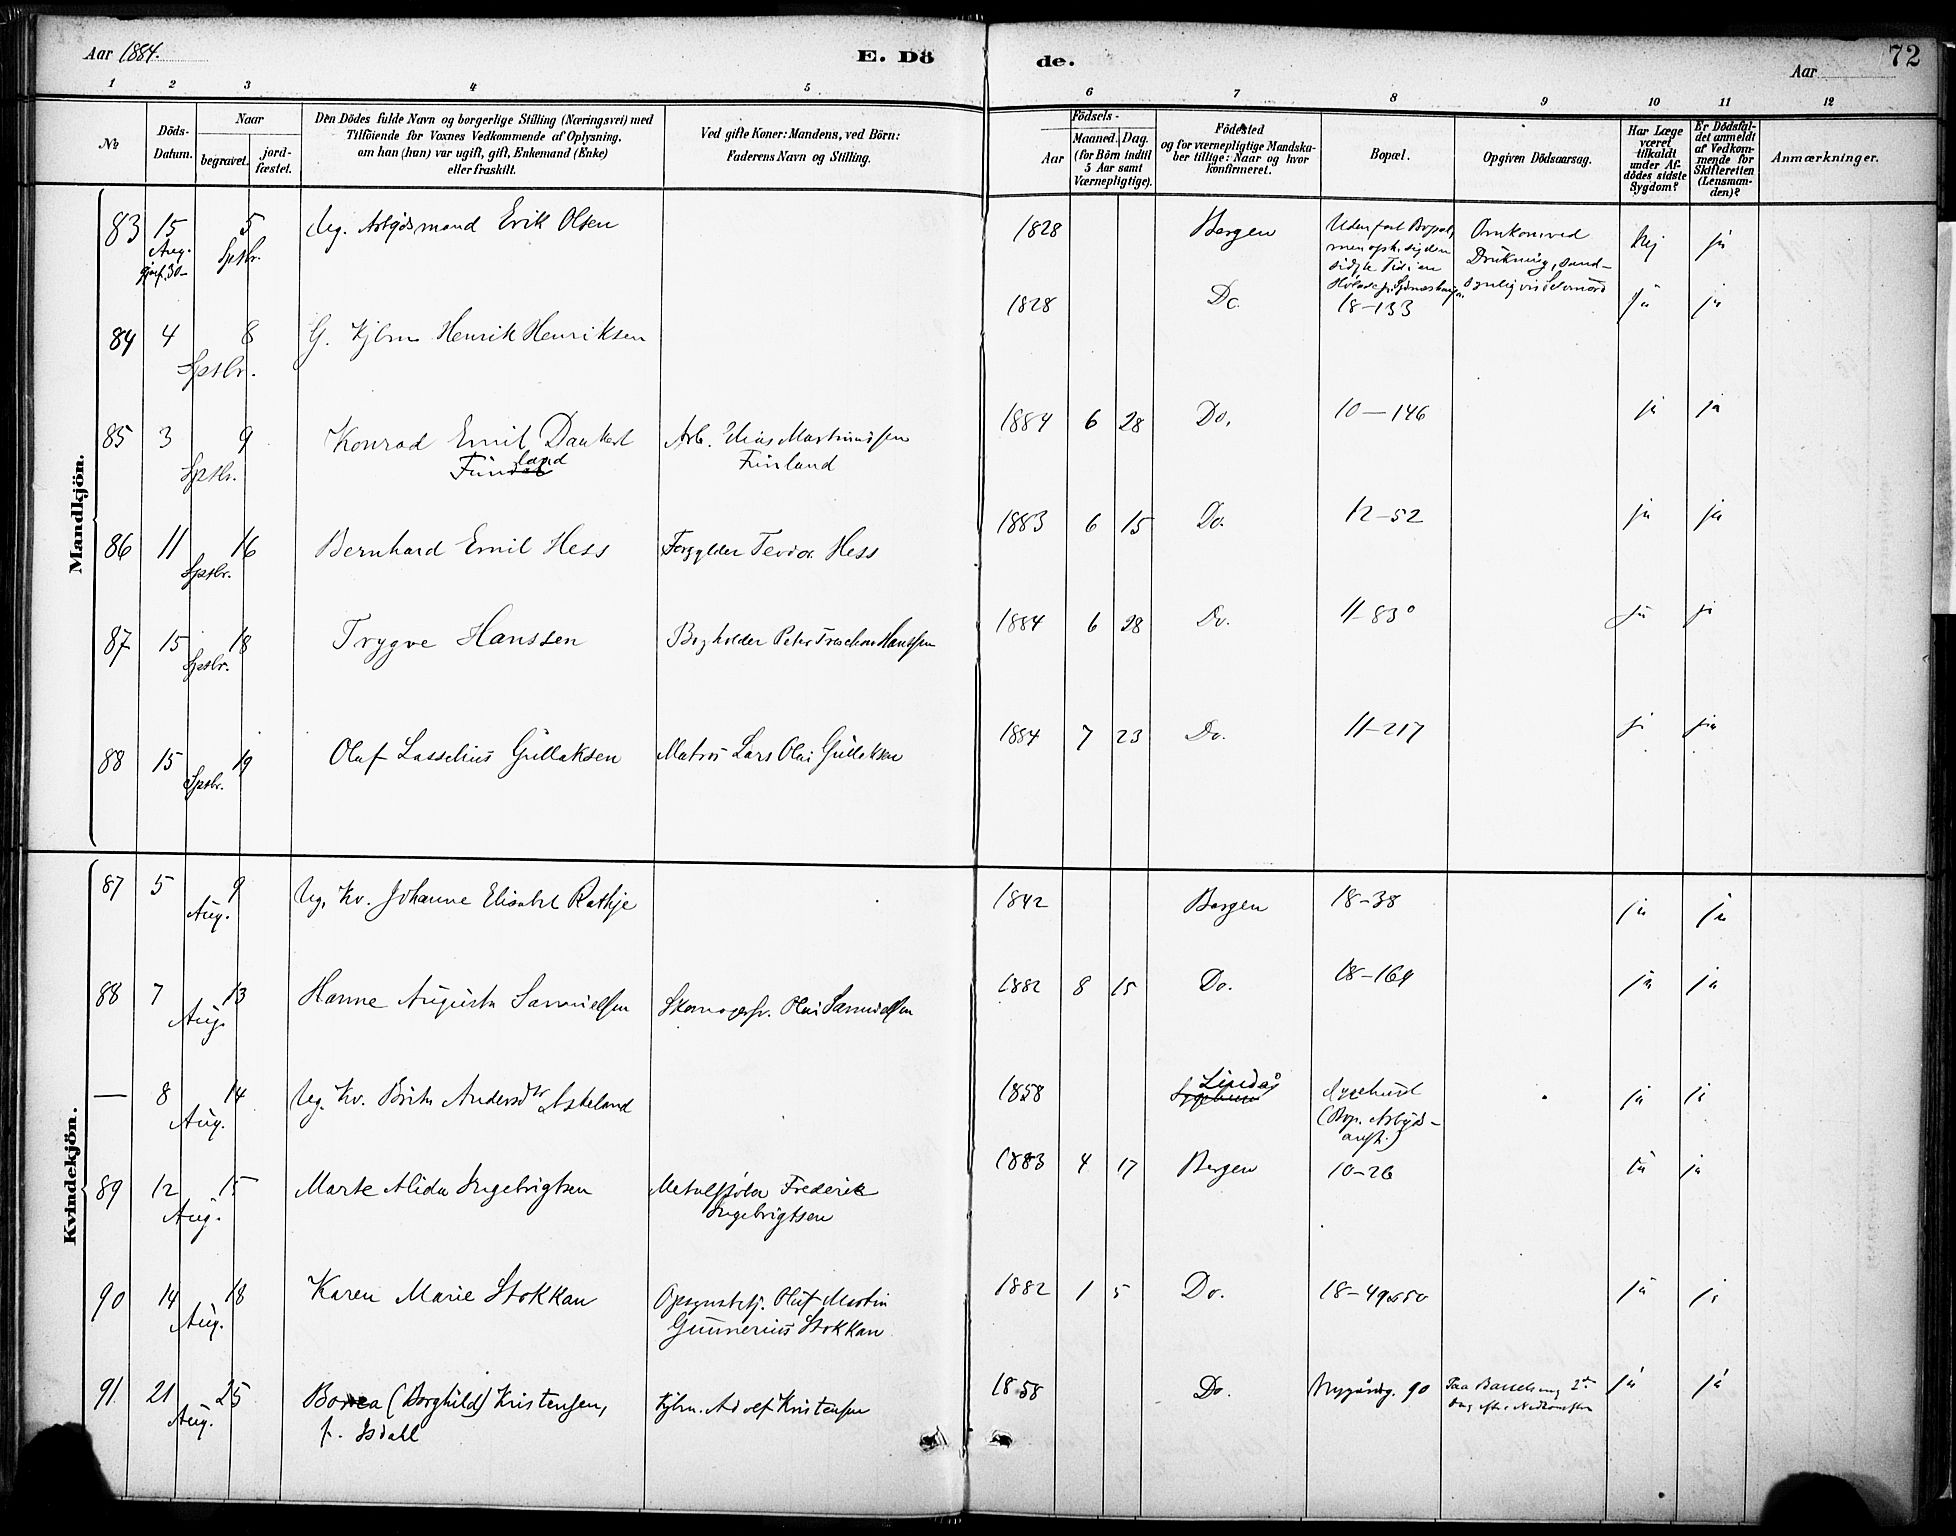 Aar 1884.
E. Dö
de.
Aar
72
1 2 3 4 5 6 7 8 9 10 11 12
No
Döds-
Datum.
Naar
begravet.
jord-
fæstet.
Den Dödes fulde Navn og borgerlige Stilling (Næringsvei) med
Tilföiende for Voxnes Vedkommende af Oplysning,
om han (hun) var ugift, gift, Enkemand (Enke)
eller fraskilt.
Ved gifte Koner: Mandens, ved Börn:
Faderens Navn og Stilling.
Födsels-
Aar
Maaned. Dag.
(for Börn indtil
5 Aar samt
Værnepligtige).
Födested
og for værnepligtige Mandska-
ber tillige: Naar og hvor
konfirmeret.
Bopæl.
Opgiven Dödsaarsag.
Har Læge
været
tilkaldt
under Af-
dödes sidste
Sygdom?
Er Dödsfal-
det anmeldt
af Vedkom-
mende for
Skifteretten
(Lensman-
den)?
Anmærkninger.
Mandkjön.
83 15 Aug. 5 Sptbr. Ug. Arbejdsmand Erik Olsen 1828 Bergen Uden fast Bopæl, Omkom ved Drukning, Nej ja
84 4 8 Sptbr. G. Kjbm Henrik Henriksen 1828 Do. 18-133 ja ja
85 3 9 Sptbr. Konrad Emil Dankert
Finland
Arb. Elias Martinussen
Finland
1884 6 28 Do. 10-146 ja ja
86 11 16 Sptbr. Bernhard Emil Hess Forgylder Teodor Hess 1883 6 15 Do. 12-52 ja ja
87 15 18 Sptbr. Trygve Hanssen Bogholder Peter Hanssen 1884 6 28 Do. 11-83 ja ja
88 15 19 Sptbr. Olaf Lasselius Gullaksen Matros Lars Olai Gullaksen 1884 7 23 Do. 11-217 ja ja
Kvindekjön.
87 5 9 Aug. Ug. Kv. Johanne Elisabet Rathje 1842 Bergen 18-38 ja ja
88 7 13 Aug. Hanne Augusta Samuelsen Skomagersv. Olai Samuelsen 1882 8 15 Do. 18-164 ja ja
— 8 14 Aug. Ug. Kv. Brita Andersdtr Askeland 1858 Lindås Sygehuset
(Bop. Arbejds-
anst.)
ja ja
89 12 15 Aug. Marte Alida Ingebrigtsen Frederik
Ingebrigtsen
1883 4 17 Bergen 10-26 ja ja
90 14 18 Aug. Karen Marie Stokkan Opsynsbetj. Oluf Martin
Gunnerius Stokkan
1882 1 5 Do. 18-49 50 ja ja
91 21 25 Aug. (Borghild) Kristensen,
f. Isdahl
Kjbm. Adolf Kristensen 1858 Do. Nygårdsg. 90 Paa Barselseng ja ja